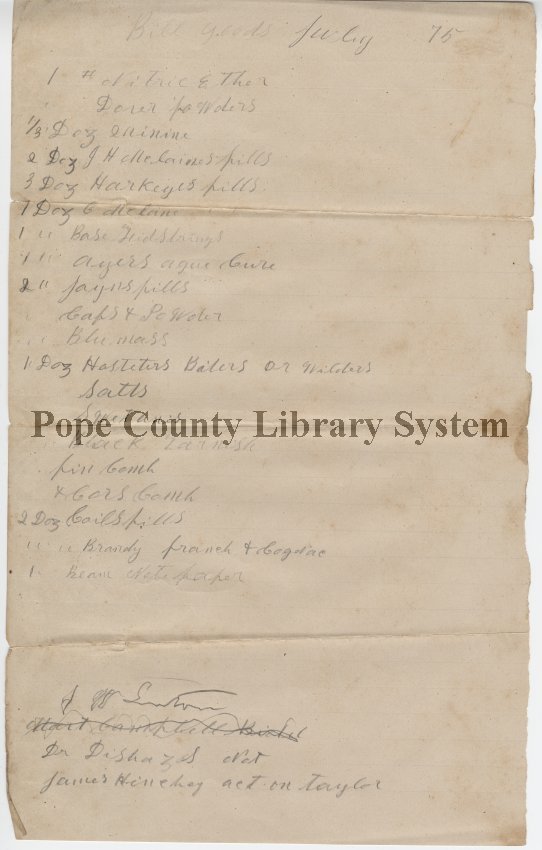 Bill goods July 75
1 " Nitric Ether
" Dover powders
1/3 Doz Quinine
2 Doz J H McLaines pills
3 Doz Harkeyes pills
1 Doz C McLane
1 " Base Fidstrings
1 " ayers ague Cure
2 " Jayns pills
" Caps & Powder
" Blu mass
1 Doz Hosteters Biters or Wilders
Salts
Pope County Library System
pin Comb
& Cors Comb
2 Doz Coils pills
" " Brandy franch & Cogdac
1 Ream Note paper
J W
Dr Dishazs Not
James Hinchey act on taylor